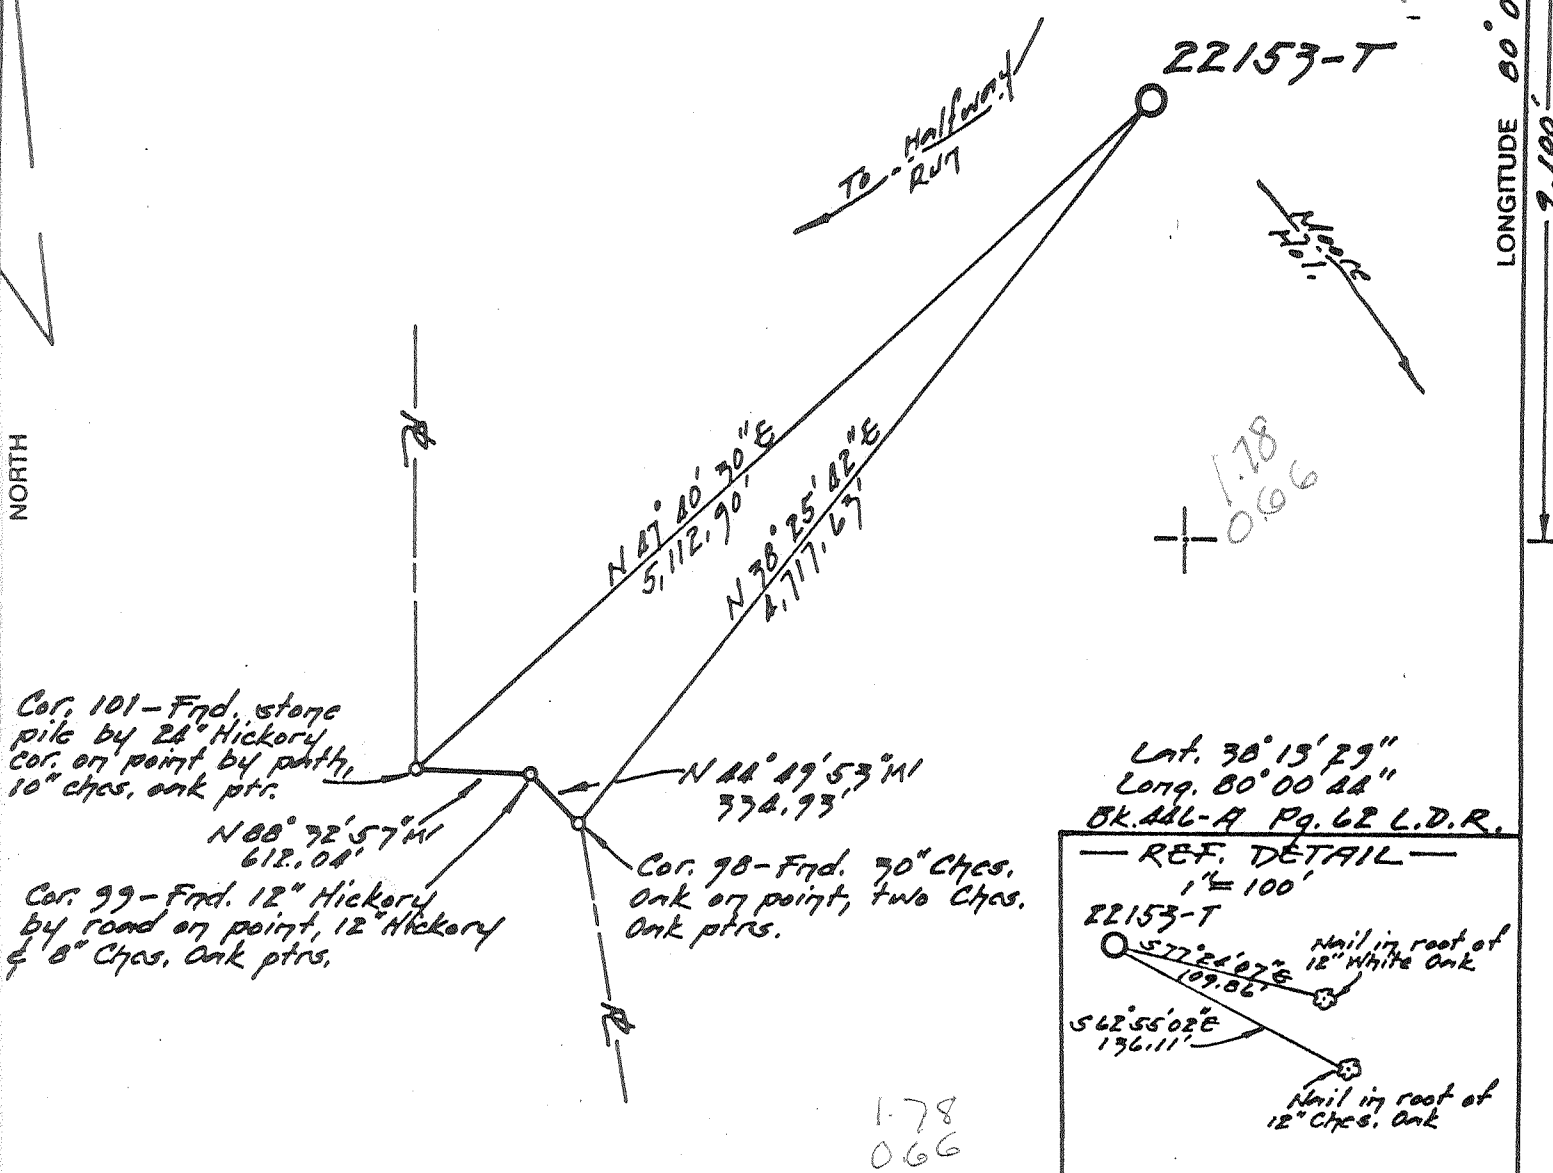 22153-T
To Halfway
Run
Moore
Hol.
LONGITUDE 80° 0
9,100'
NORTH
N 47° 40' 30" E
5,112.90'
N 38° 25' 42" E
4,717.63'
1.78
0.66
Cor. 101 - Fnd. stone
pile by 24" Hickory
cor. on point by path,
10" ches. oak ptr.
N 88° 32' 57" W
612.04'
N 44° 49' 53" W
334.93'
Cor. 99 - Fnd. 12" Hickory
by road on point, 12" Hickory
& 8" Ches. Oak ptrs.
Cor. 98 - Fnd. 30" Ches.
Oak on point, two Ches.
Oak ptrs.
Lat. 38° 13' 29"
Long. 80° 00' 44"
Bk. 446-A Pg. 62 L.D.R.
REF. DETAIL
1" = 100'
22153-T
S 77° 24' 07" E
109.86'
Nail in root of
12" White Oak
S 62° 55' 02" E
136.11'
Nail in root of
12" Ches. Oak
1.78
0.66